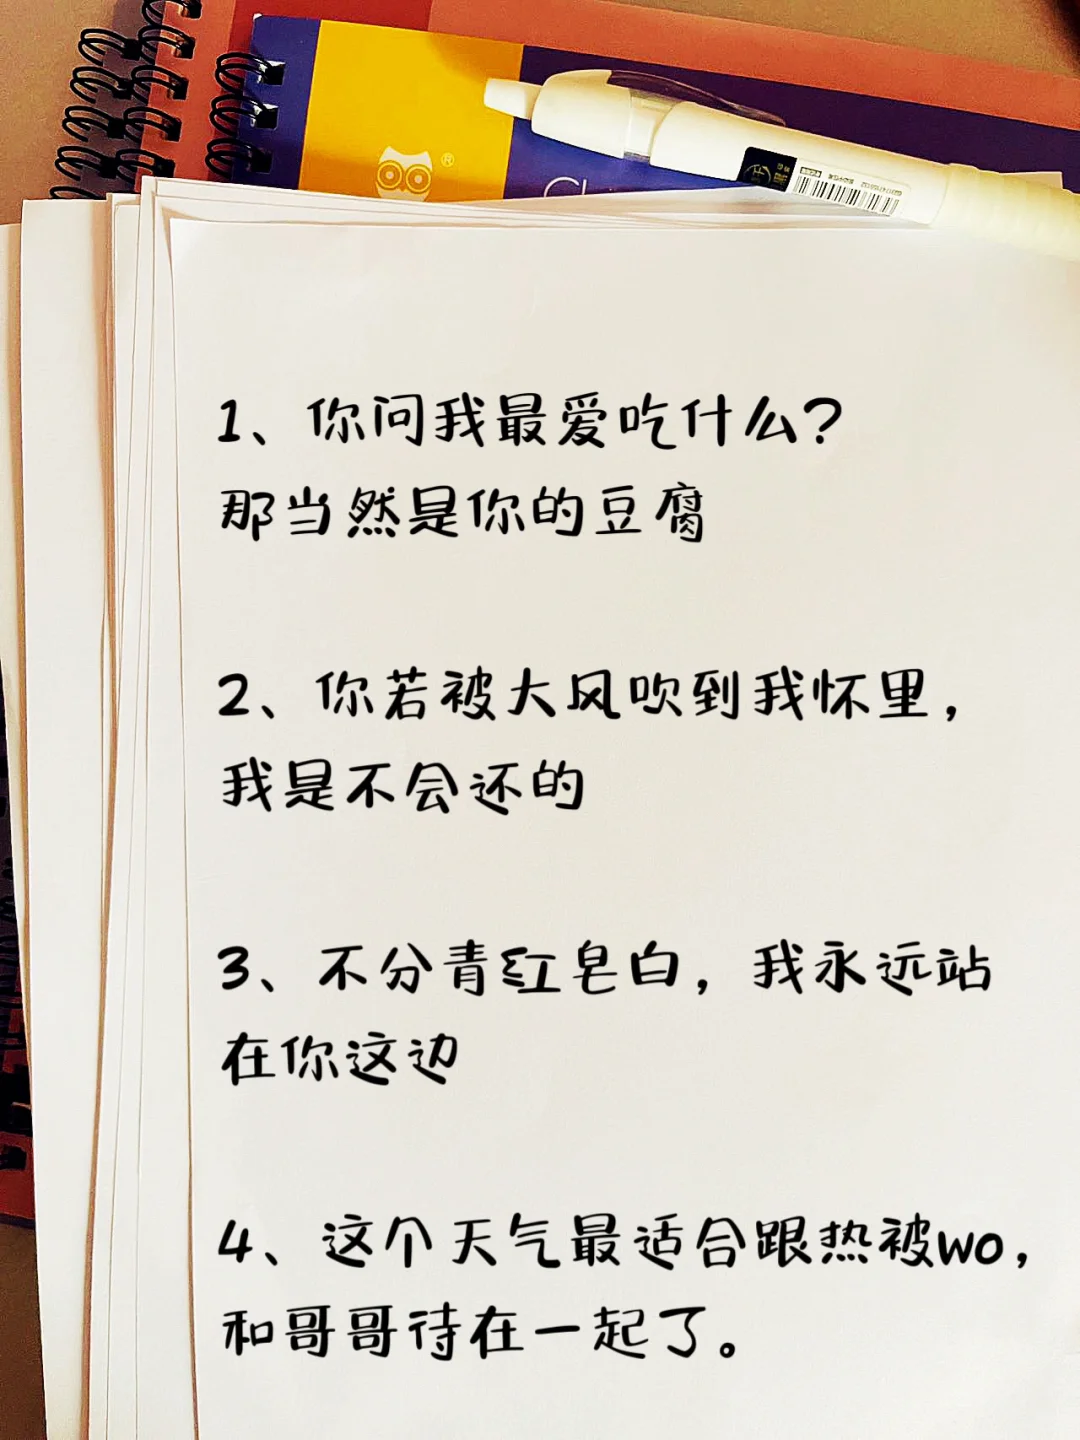 1、你问我最爱吃什么？
那当然是你的豆腐
2、你若被大风吹到我怀里，
我是不会还的
3、不分青红皂白，我永远站
在你这边
4、这个天气最适合跟热被wo，
和哥哥待在一起了。